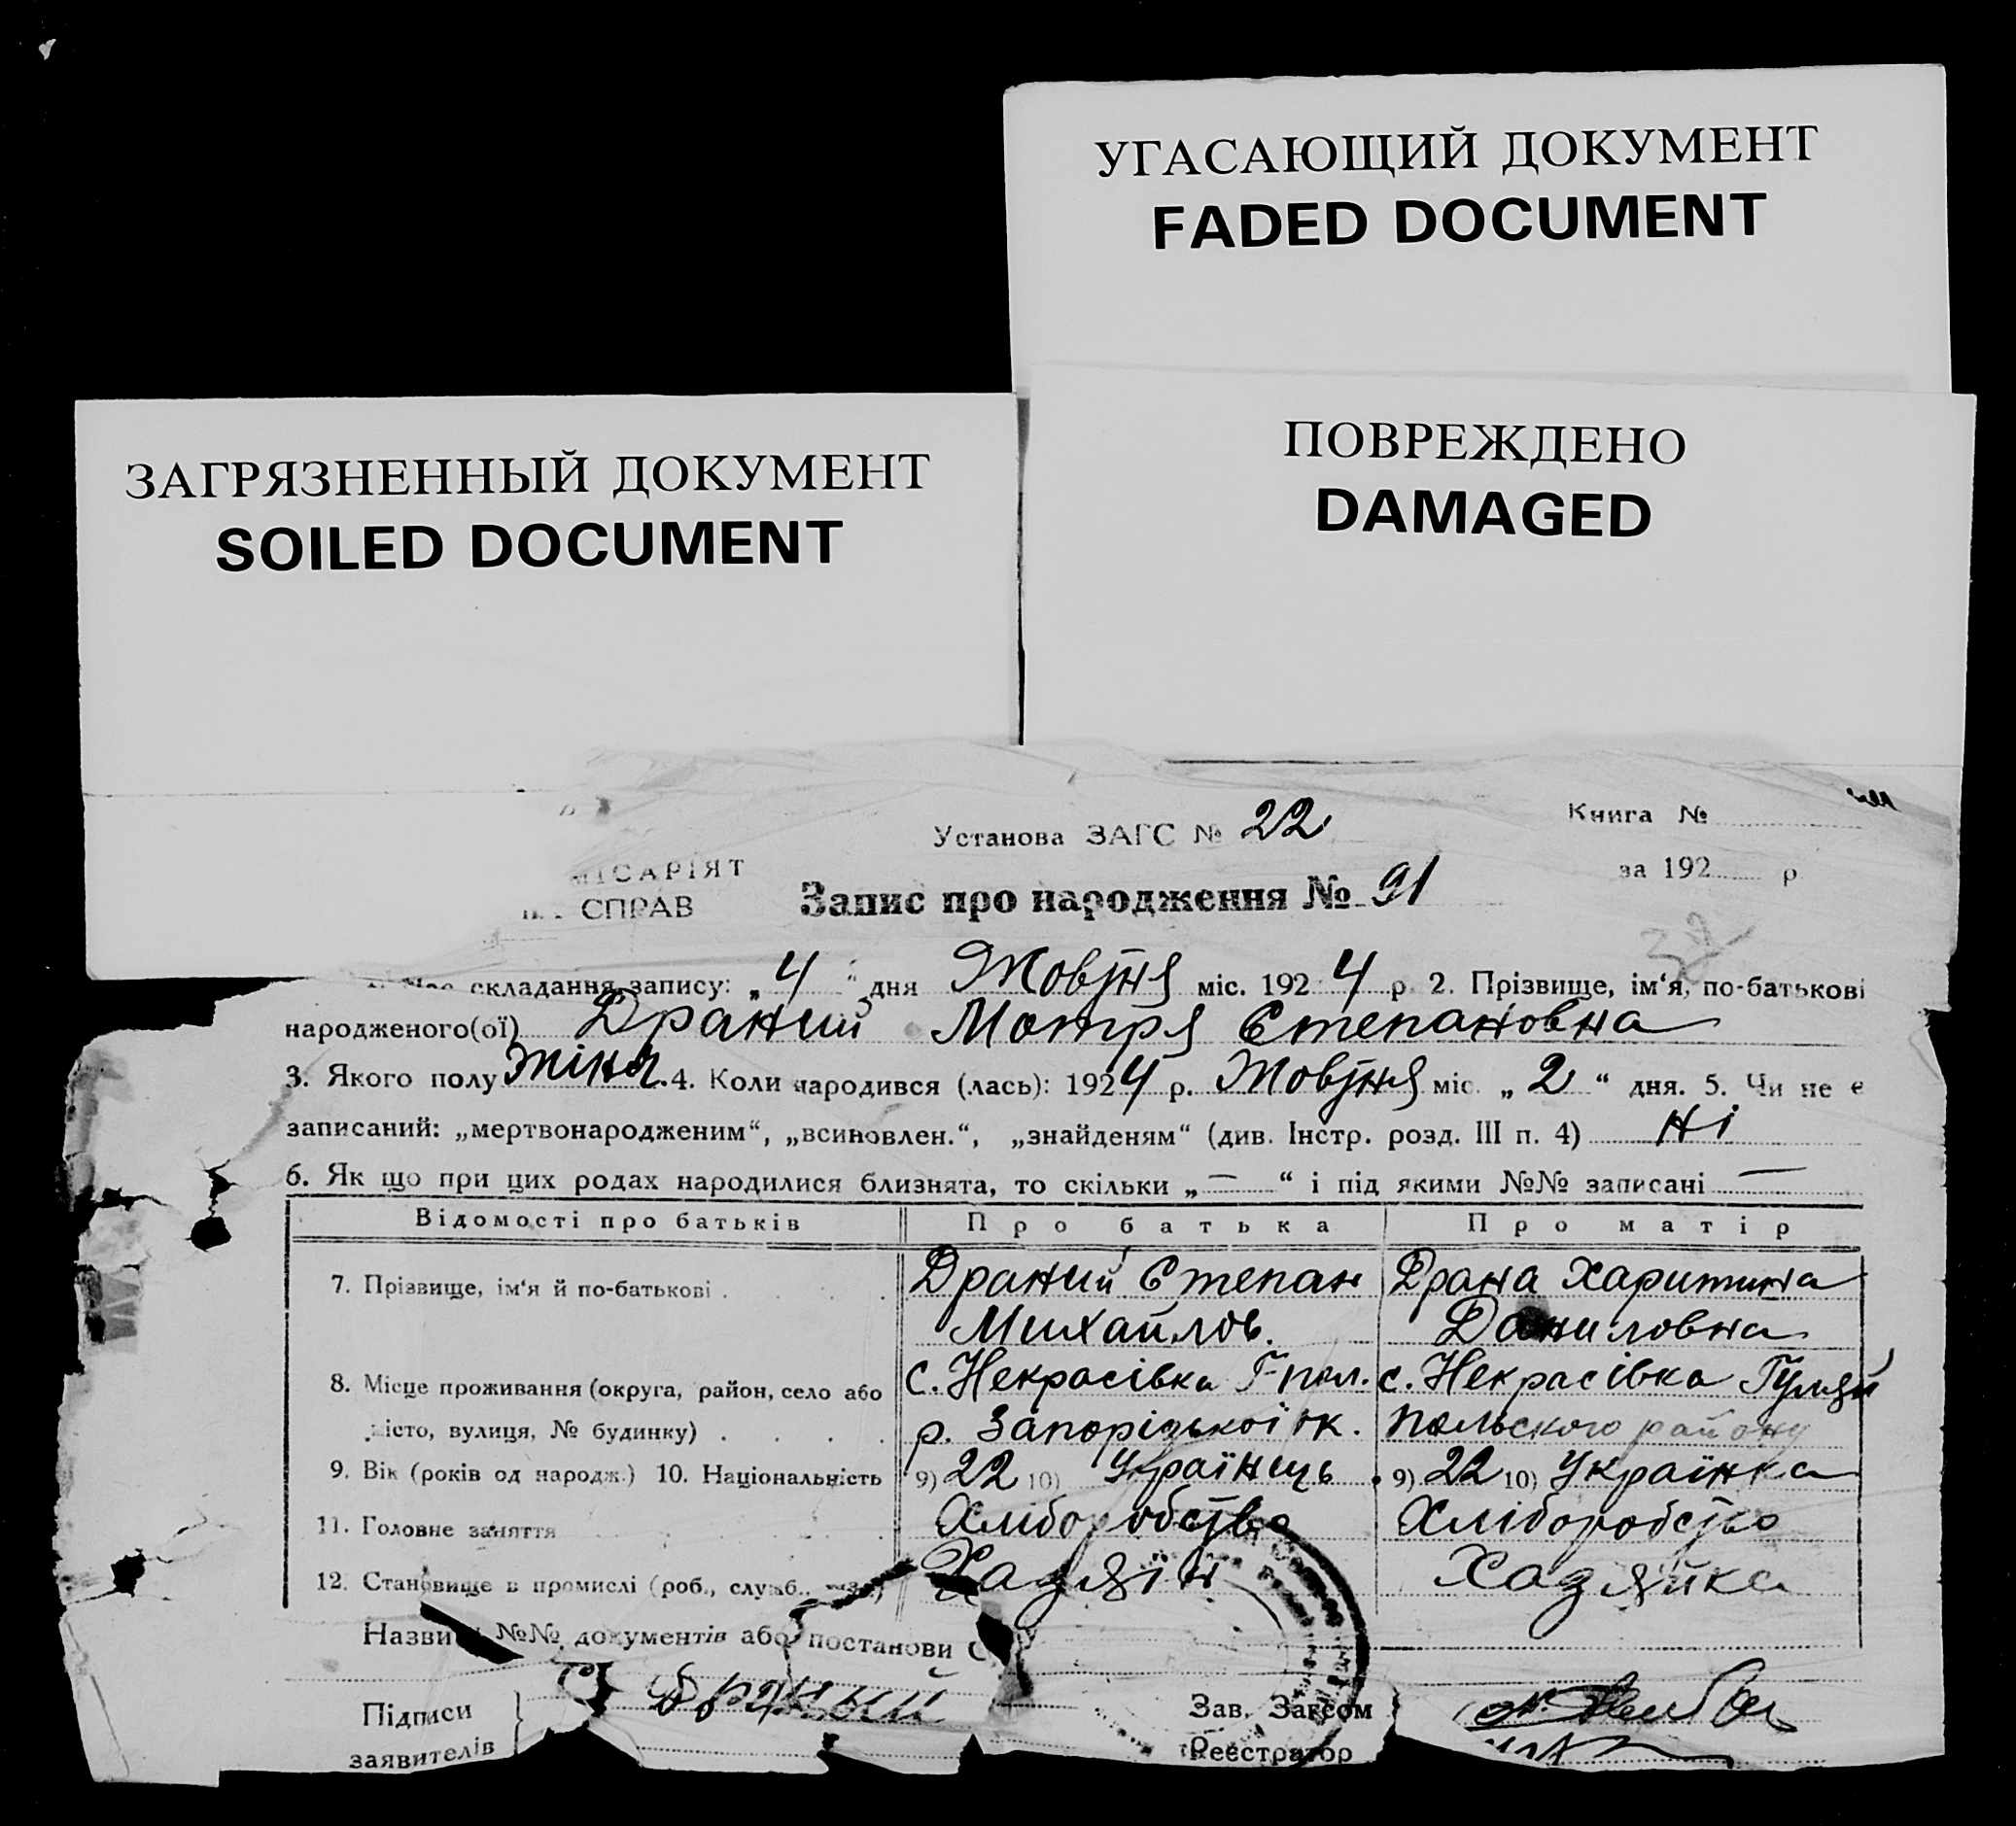 УГАСАЮЩИЙ ДОКУМЕНТ
FADED DOCUMENT
ЗАГРЯЗНЕННЫЙ ДОКУМЕНТ
SOILED DOCUMENT
ПОВРЕЖДЕНО
DAMAGED
Установа ЗАГС № 22
Книга №
МІСАРІЯТ
за 192 р
СПРАВ
Запис про народження № 91
складання запису: „4“ дня Жовтня міс. 1924 р 2. Прізвище, ім'я, по-батькові
народженого(ої) Драний Мотря Степановна
3. Якого полу жіноч. 4. Коли народився (лась): 1924 р. Жовтня міс. „2“ дня. 5. Чи не є
записаний: „мертвонародженим“, „всиновлен.“, „знайденям“ (див. Інстр. розд. III п. 4) Ні
6. Як що при цих родах народилися близнята, то скільки „—“ і під якими №№ записані —
Відомості про батьків Про батька Про матір
7. Прізвище, ім'я й по-батькові . . . . Драний Степан Драна Харитина
Михайлов. Даниловна
8. Місце проживання (округа, район, село або с. Некрасівка Г-пол. с. Некрасівка Гуляй
місто, вулиця, № будинку) . . . . р. Запорізької ок. Польского району
9. Вік (років од народж.) 10. Національність 9) 22 10) Українець 9) 22 10) Українка
11. Головне заняття Хліборобство Хліборобство
12. Становище в промислі (роб., служб., Хазяїн Хазяйка
Назви №№ документів або постанови
Підписи Драный Зав. Загсом
заявителів Реєстратор